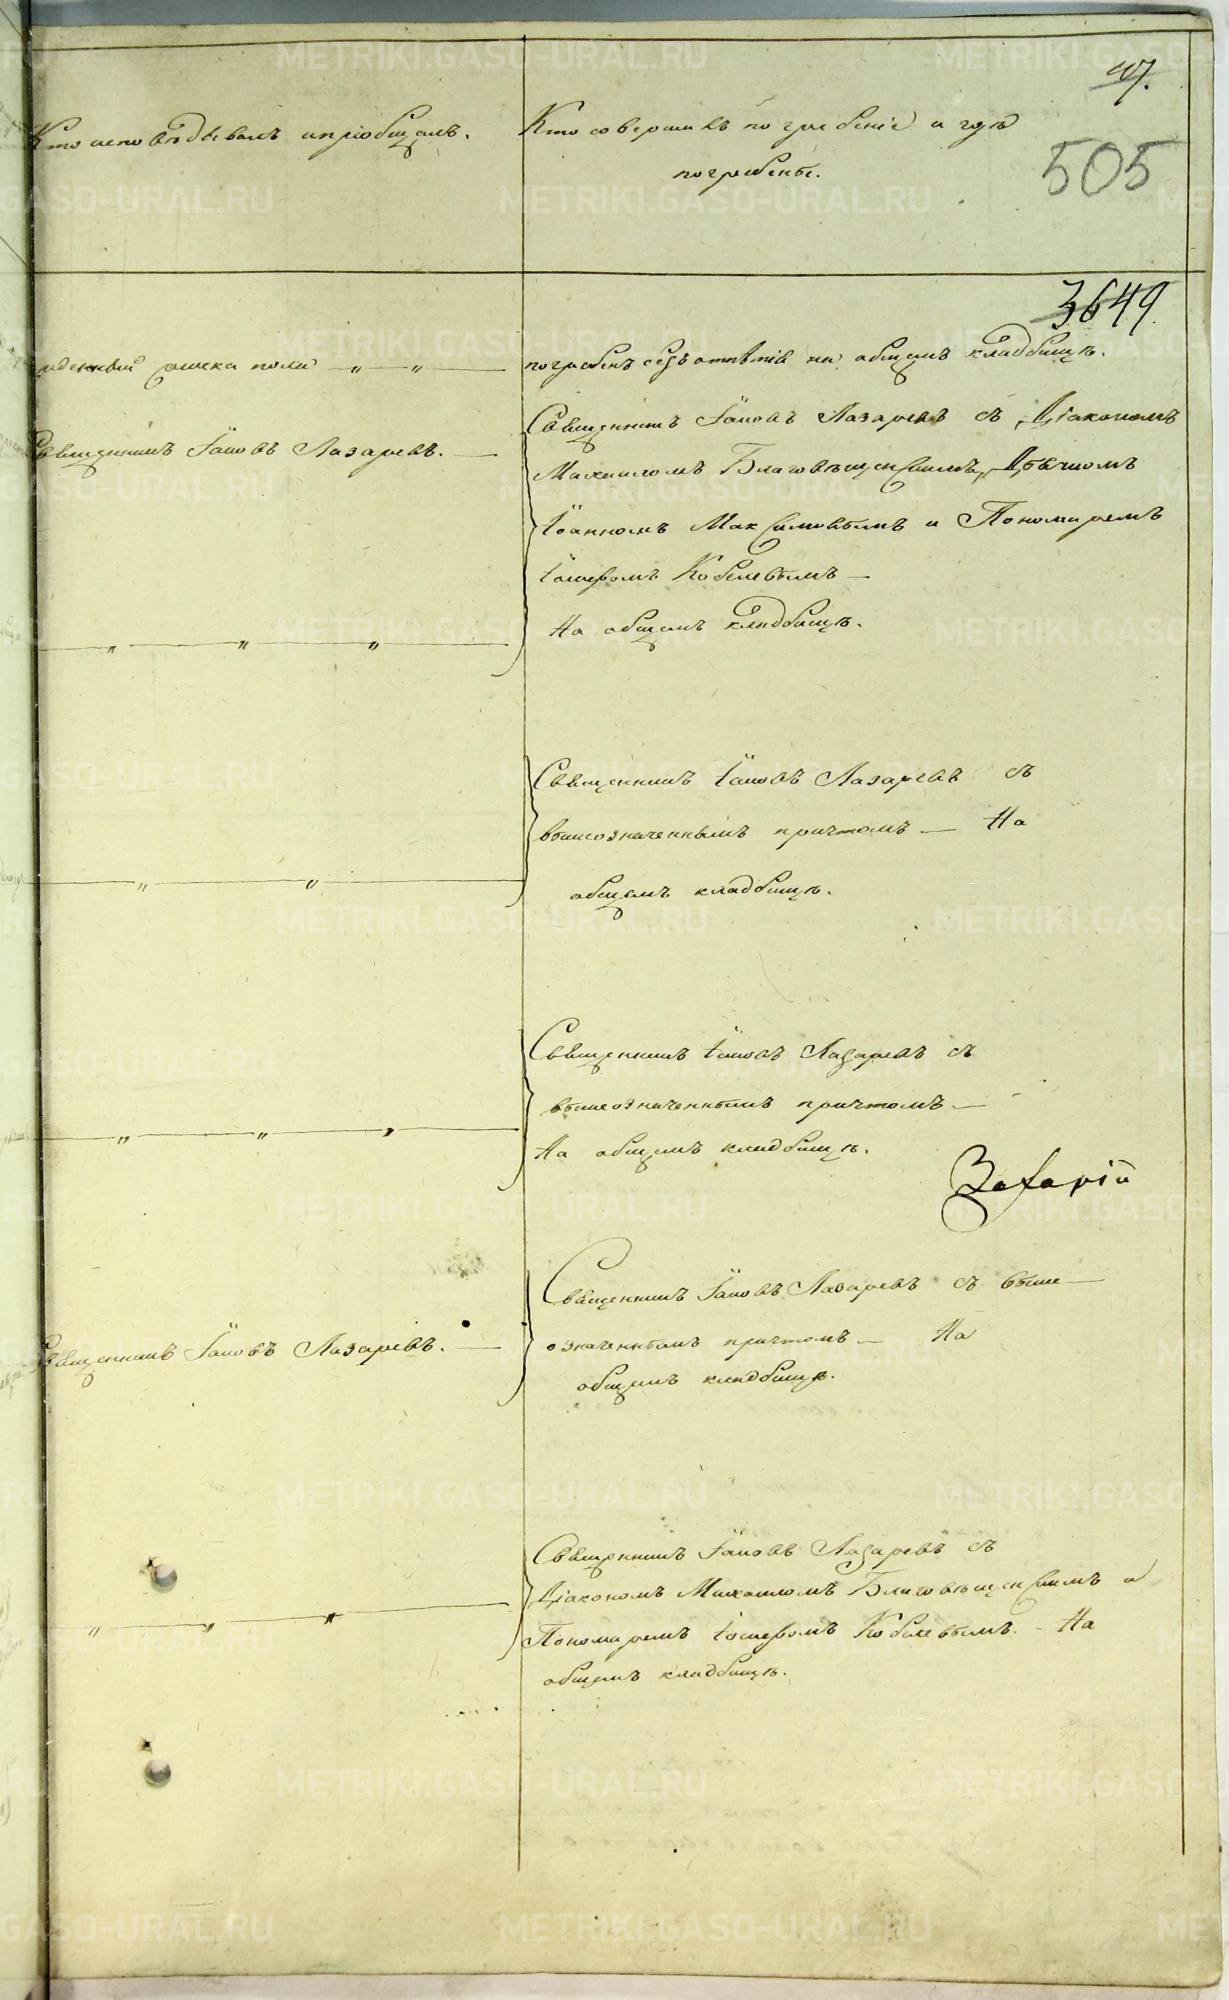 47.
Кто исповѣдывалъ и пріобщалъ.
Кто совершилъ погребеніе и гдѣ
погребены.
505
3649
погребенъ безъ отпѣтія на общемъ кладбищѣ.
Священникъ Іаковъ Лазаревъ.
Священникъ Іаковъ Лазаревъ съ Діакономъ
Михаиломъ Благовѣщенскимъ, Дьячкомъ
Іоанномъ Максимовымъ и Пономаремъ
Іосифомъ Кобелевымъ
На общемъ кладбищѣ.
Священникъ Іаковъ Лазаревъ съ
вышеозначеннымъ причтомъ — На
общемъ кладбищѣ.
Священникъ Іаковъ Лазаревъ съ
вышеозначеннымъ причтомъ —
На общемъ кладбищѣ.
Захарій
Священникъ Іаковъ Лазаревъ.
Священникъ Іаковъ Лазаревъ съ выше-
означеннымъ причтомъ — На
общемъ кладбищѣ.
Священникъ Іаковъ Лазаревъ съ
Діакономъ Михаиломъ Благовѣщенскимъ и
Пономаремъ Іосифомъ Кобелевымъ. - На
общемъ кладбищѣ.
METRIKI.GASO-URAL.RU